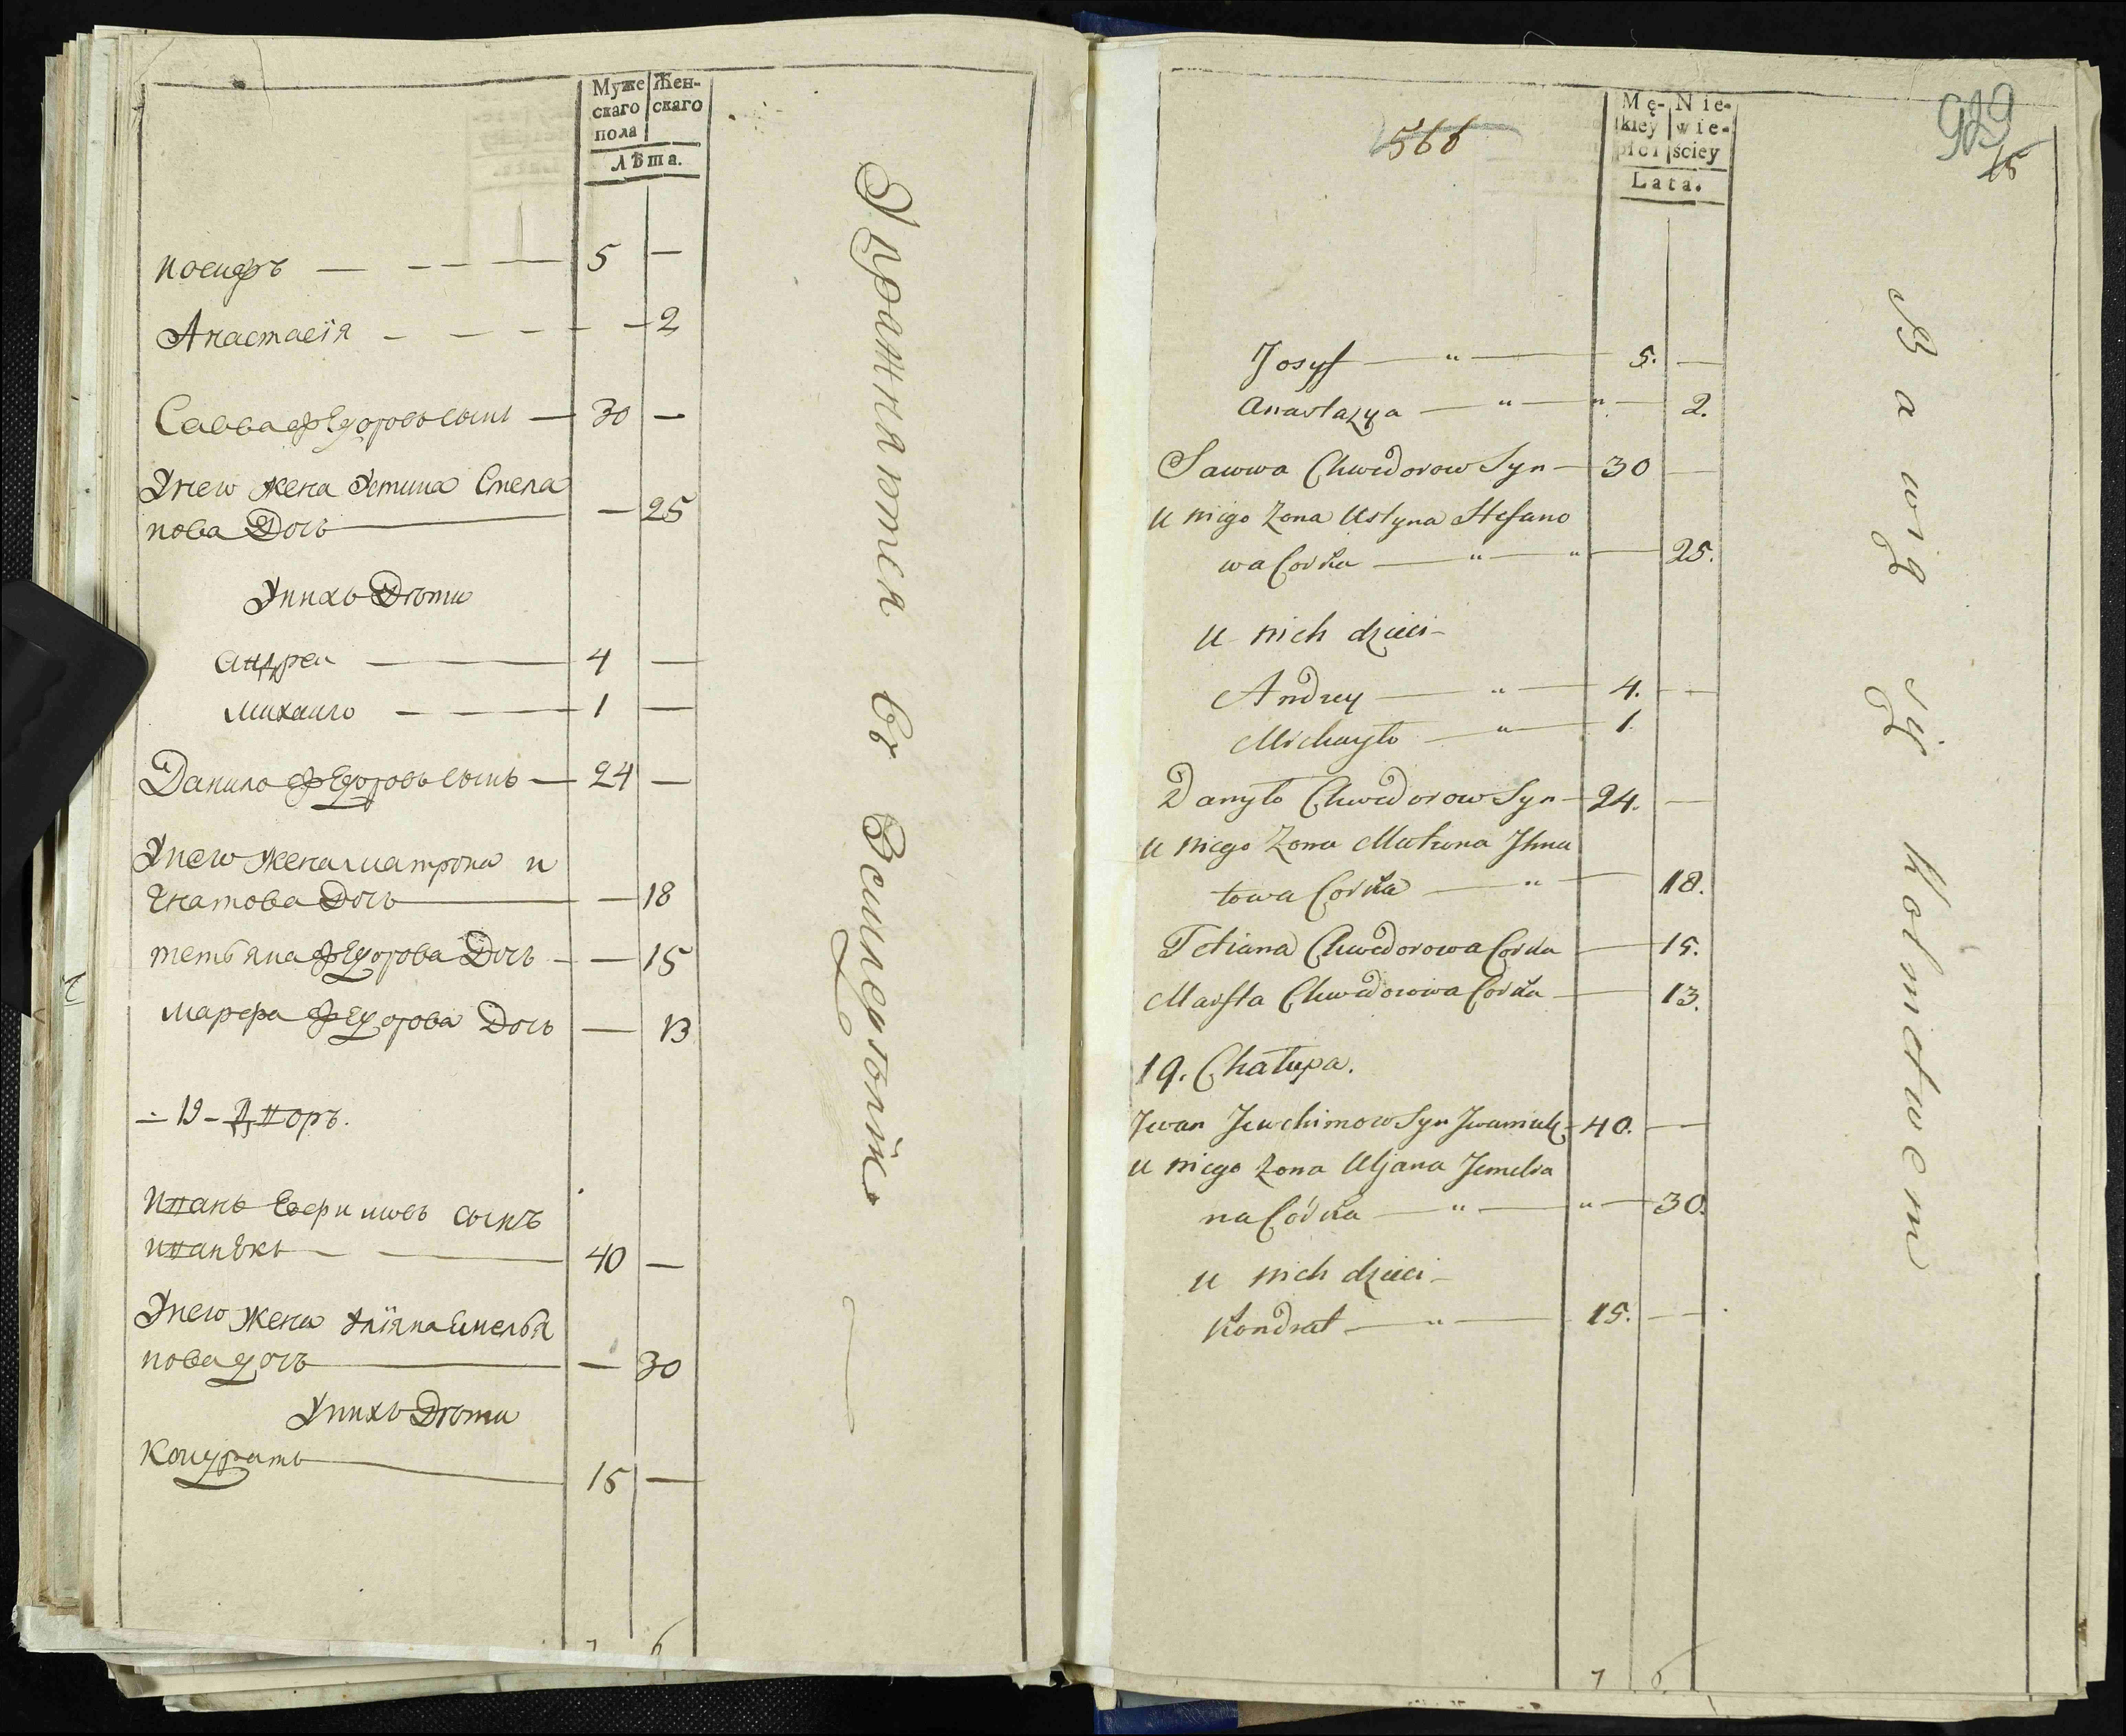 Муже Жен-
скаго скаго
пола
лѣта.
иосифъ — 5 —
Анастасія — — 2
Савва федоровъ сынъ — 30 —
У нево жена Устина Степа
нова Дочь — — 25
У нихъ Дѣти
андреи — 4 —
михаило — 1 —
Данило федоровъ сынъ — 24 —
У нево жена матрона и
гнатова Дочь — — 18
тетьяна федорова Дочь — — 15
марфа федорова Дочь — 13
19 - Дворъ.
иванъ Еѳфимовъ сынъ
иванюкъ — 40 —
У нево жена улїяна Емелья
нова дочь — — 30
У нихъ Дѣти
Кондратъ — 15 —
7 6
Упражняются въ Земледелїи
566
Mę- Nie-
kiey wie-
płci ściey
Lata.
929
15
Josyf — " — 5. —
Anastazya — " — " — 2.
Sawwa Chwedorow Syn — 30 —
u niego Zona Ustyna Stefano
wa Corka — " — " — 25.
u nich dzieci —
Andrey — " — 4. —
Michayło — " — 1.
Danyło Chwedorow Syn — 24. —
u niego Zona Matrona Ihna
towa Corka — " — 18.
Tetiana Chwedorowa Corka — 15.
Marfta Chwedorowa Corka — 13.
19. Chałupa.
Jwan Jewchimow Syn Jwaniuk — 40. —
u niego Zona Uljana Jemelia
na Córka — " — " — 30.
u nich dzieci —
Kondrat — " — 15. —
7 6.
Bawią się Rolnictwem